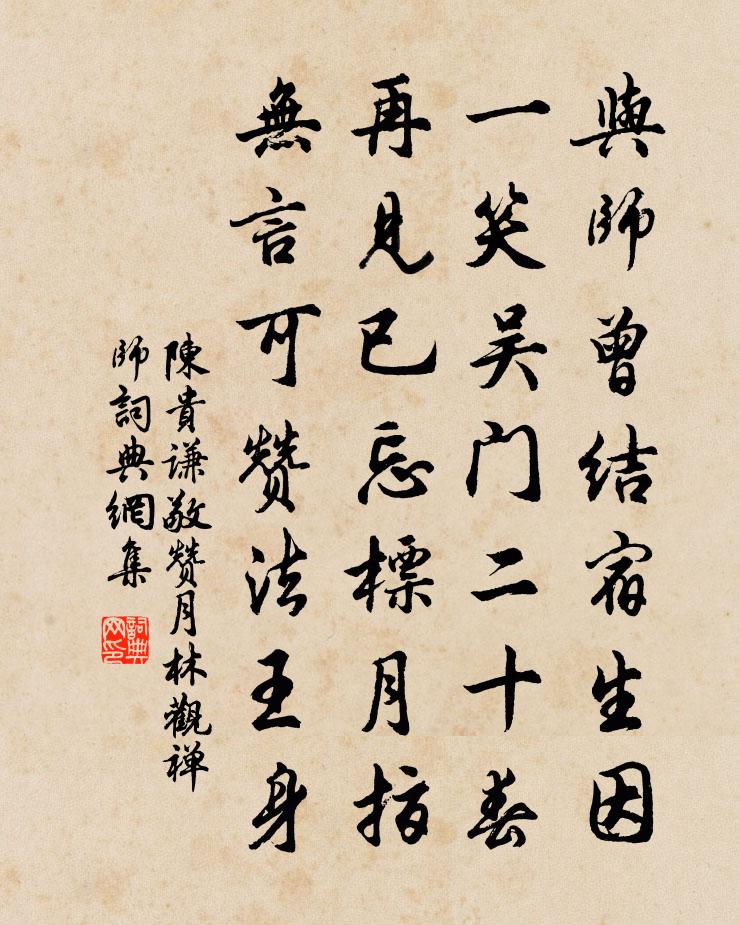 與師曾結宿生因
一笑吴门二十春
再見已忘標月指
無言可赞法王身
陳貴谦敬赞月林觀禅
師詞典網集
詞典网印